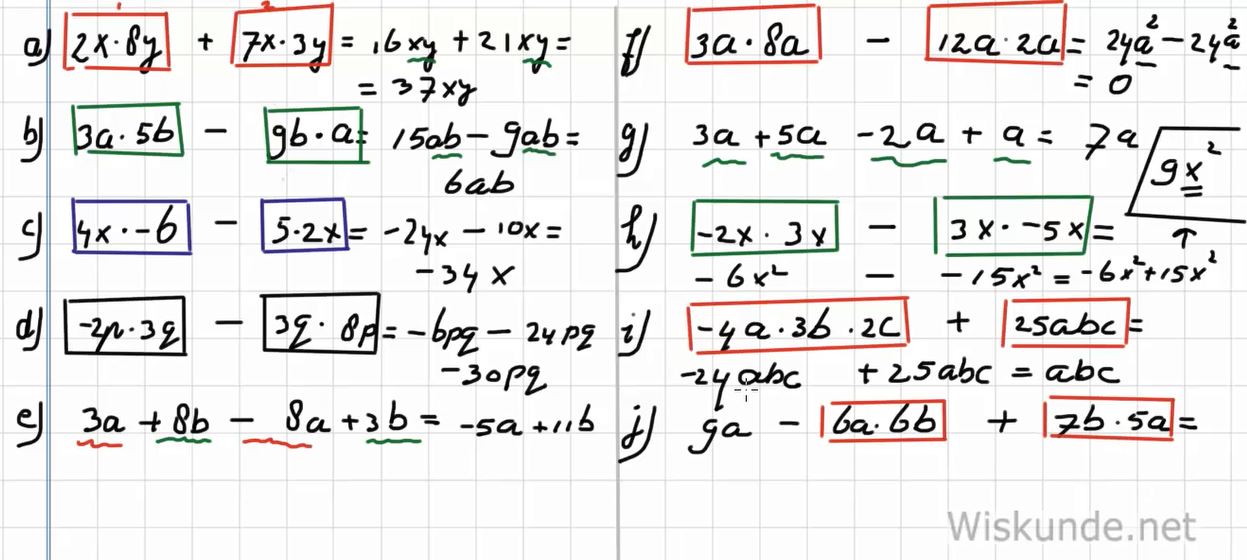 a) 2x·8y + 7x·3y = 16xy + 21xy =
= 37xy
b) 3a·5b - 9b·a = 15ab - 9ab =
6ab
c) 4x·-6 - 5·2x = -24x - 10x =
-34x
d) -2p·3q - 3q·8p = -6pq - 24pq
-30pq
e) 3a + 8b - 8a + 3b = -5a + 11b
f) 3a·8a - 12a·2a = 24a² - 24a²
= 0
g) 3a + 5a - 2a + a = 7a
9x²
↑
h) -2x·3x - 3x·-5x =
-6x² - -15x² = -6x² + 15x²
i) -4a·3b·2c + 25abc =
-24abc + 25abc = abc
j) 9a - 6a·6b + 7b·5a =
Wiskunde.net